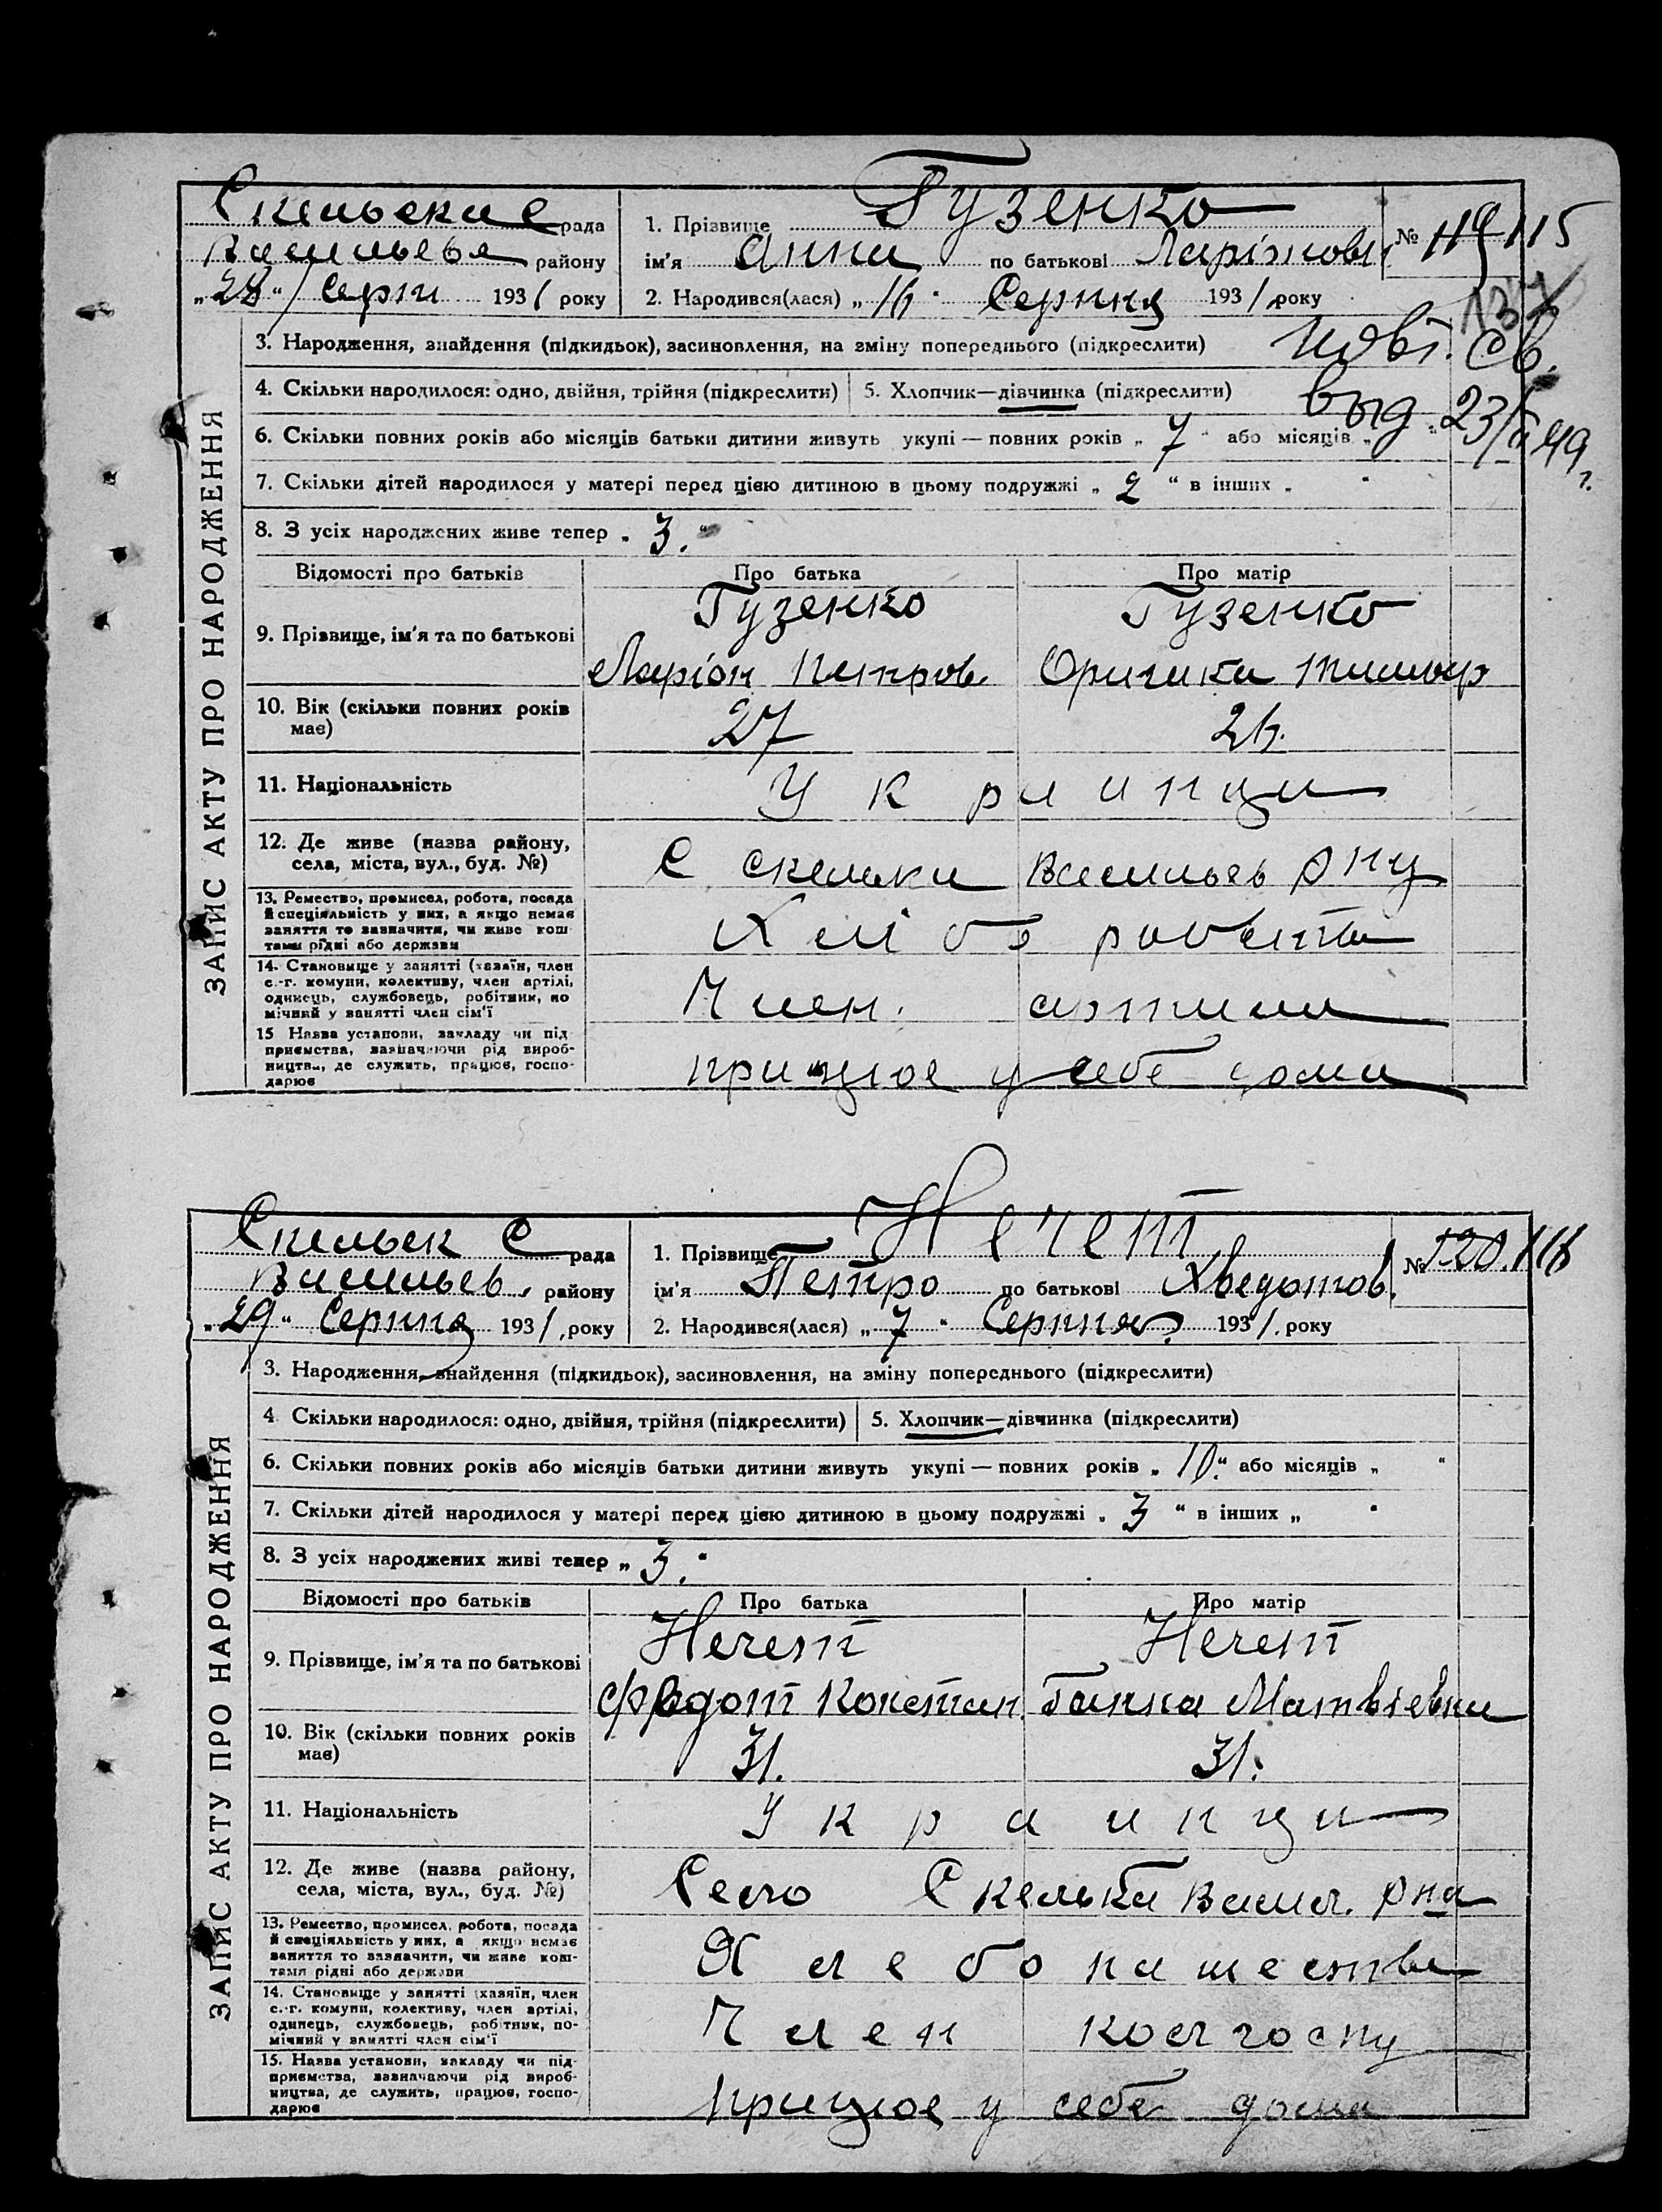 Скельска С рада
Васильевс. району
„28“ Серпн 1931 року
1. Прізвище Гузенко
ім'я Анна по батькові Ларіонов.
№ 119 115
2. Народився(лася) „16“ Серпня 1931 року
137
3. Народження, знайдення (підкидьок), засиновлення, на зміну попереднього (підкреслити)
св.
4. Скільки народилося: одно, двійня, трійня (підкреслити) 5. Хлопчик—дівчинка (підкреслити)
выд. 23/ 49 г.
6. Скільки повних років або місяців батьки дитини живуть укупі — повних років „ 7 “ або місяців „ “
7. Скільки дітей народилося у матері перед цією дитиною в цьому подружжі „ 2 “ в інших „ “
8. З усіх народжених живе тепер „ 3. “
ЗАПИС АКТУ ПРО НАРОДЖЕННЯ
Відомості про батьків Про батька Про матір
9. Прізвище, ім'я та по батькові
Гузенко Гузенко
Ларіон Петров. Оришка
10. Вік (скільки повних років має)
27 26.
11. Національність
Украинци
12. Де живе (назва району, села, міста, вул., буд. №)
С Скельки Васильев р ну
13. Ремество, промисел, робота, посада
й спеціяльність у них, а якщо немає
заняття то зазначити, чи живе кош
тами рідні або держави
Хлібо роб
14. Становище у занятті (хазяїн, член
с.-г. комуни, колективу, член артілі,
одинець, службовець, робітник, по
мічний у занятті член сім'ї
Член. артили
15 Назва установи, закладу чи під
приємства, зазначаючи рід вироб-
ництва, де служить, працює, госпо-
дарює
працює у себе дома
Скельск С рада
Васильев. району
„29“ Серпня 1931. року
1. Прізвище Нечет
ім'я Петро по батькові Хведотов.
№ 120. 116
2. Народився(лася) „7“ Серпня. 1931. року
3. Народження, знайдення (підкидьок), засиновлення, на зміну попереднього (підкреслити)
4. Скільки народилося: одно, двійня, трійня (підкреслити) 5. Хлопчик—дівчинка (підкреслити)
6. Скільки повних років або місяців батьки дитини живуть укупі — повних років „ 10. “ або місяців „ “
7. Скільки дітей народилося у матері перед цією дитиною в цьому подружжі „ 3 “ в інших „ “
8. З усіх народжених живі тепер „ 3. “
ЗАПИС АКТУ ПРО НАРОДЖЕННЯ
Відомості про батьків Про батька Про матір
9. Прізвище, ім'я та по батькові
Нечет Нечет
Федот Констан. Ганна Матвіевна
10. Вік (скільки повних років має)
31. 31.
11. Національність
Украинци
12. Де живе (назва району, села, міста, вул., буд. №)
Село Скелька Васил. рна
13. Ремество, промисел, робота, посада
й спеціяльність у них, а якщо немає
заняття то зазначити, чи живе кош-
тами рідні або держави
Хлебопашества
14. Становище у занятті (хазяїн, член
с.-г. комуни, колективу, член артілі,
одинець, службовець, робітник, по-
мічний у занятті член сім'ї
Член колгоспу
15. Назва установи, закладу чи під-
приємства, зазначаючи рід вироб-
ництва, де служить, працює, госпо-
дарює
працює у себе дома